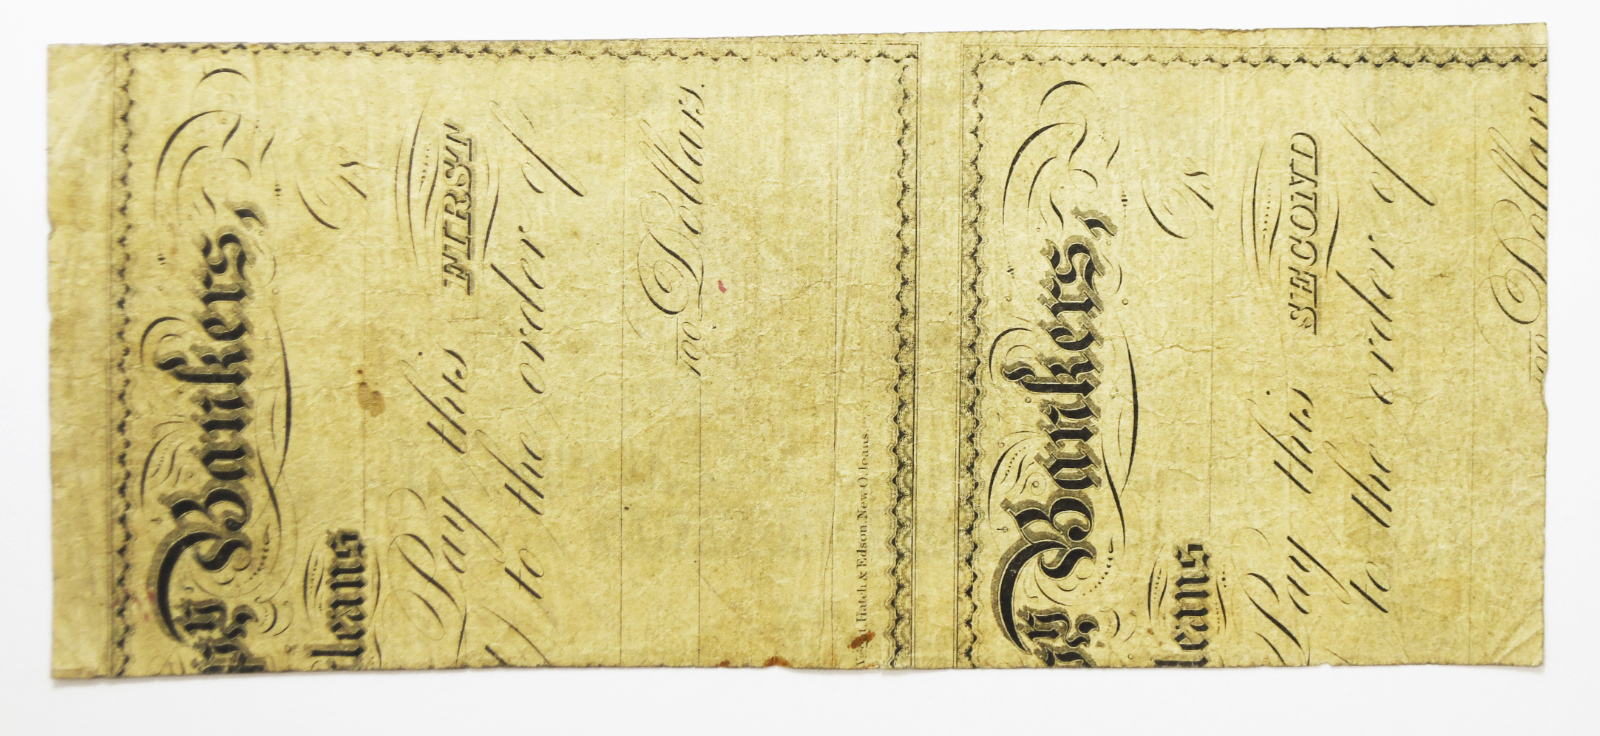 Bankers,
18
leans
Pay this FIRST
to the order of
100 Dollars.
Hatch & Edson New Orleans
Bankers,
18
leans
Pay this SECOND
to the order of
100 Dollars